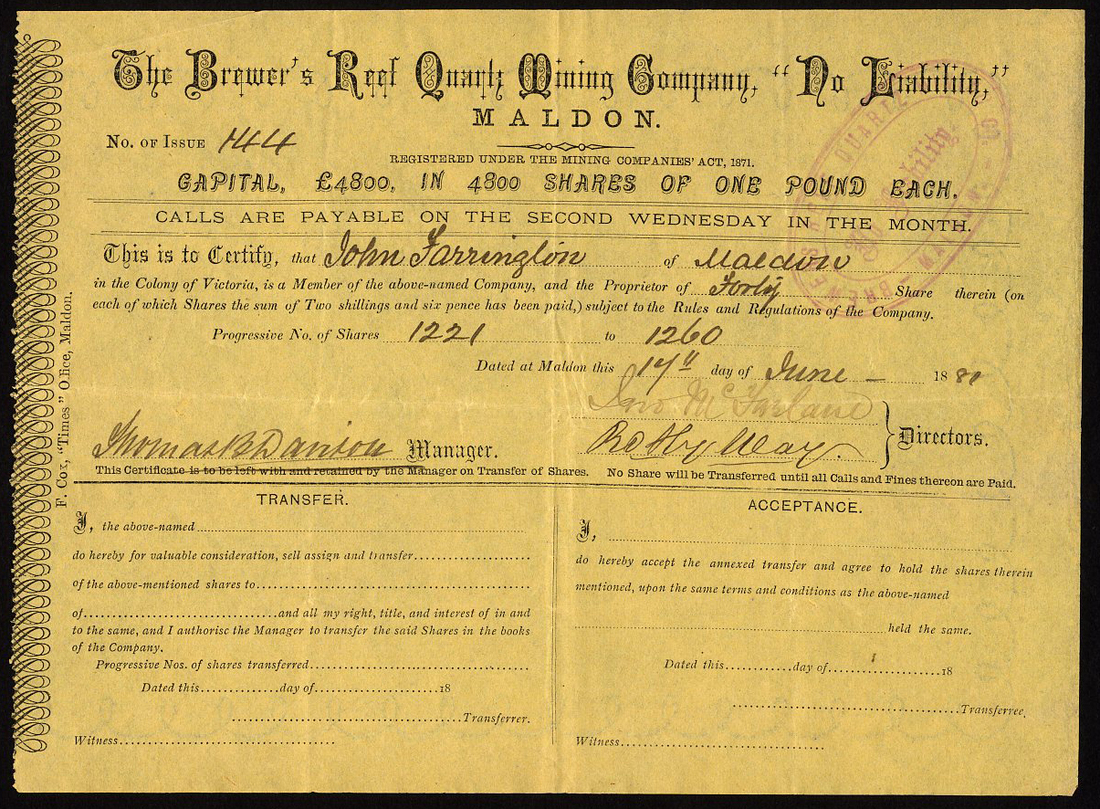 The Brewer's Reef Quartz Mining Company, "No Liability,"
MALDON.
No. OF ISSUE 144
REGISTERED UNDER THE MINING COMPANIES' ACT, 1871.
CAPITAL, £4800, IN 4800 SHARES OF ONE POUND EACH.
CALLS ARE PAYABLE ON THE SECOND WEDNESDAY IN THE MONTH.
This is to Certify, that John Farrington of Maldon
in the Colony of Victoria, is a Member of the above-named Company, and the Proprietor of Forty Share therein (on
each of which Shares the sum of Two shillings and six pence has been paid,) subject to the Rules and Regulations of the Company.
Progressive No. of Shares 1221 to 1260
Dated at Maldon this 17th day of June 18
McFarlane
Thomas B Danson Manager.
Way. Directors.
This Certificate is to be left with and retained by the Manager on Transfer of Shares. No Share will be Transferred until all Calls and Fines thereon are Paid.
F. Cox, "Times" Office, Maldon.
BREWER'S REEF QUARTZ MINING CO.
No Liability.
TRANSFER.
I, the above-named
do hereby for valuable consideration, sell assign and transfer
of the above-mentioned shares to
of and all my right, title, and interest of in and
to the same, and I authorise the Manager to transfer the said Shares in the books
of the Company.
Progressive Nos. of shares transferred
Dated this day of 18
Transferrer.
Witness
ACCEPTANCE.
I,
do hereby accept the annexed transfer and agree to hold the shares therein
mentioned, upon the same terms and conditions as the above-named
held the same.
Dated this day of 18
Transferree,
Witness